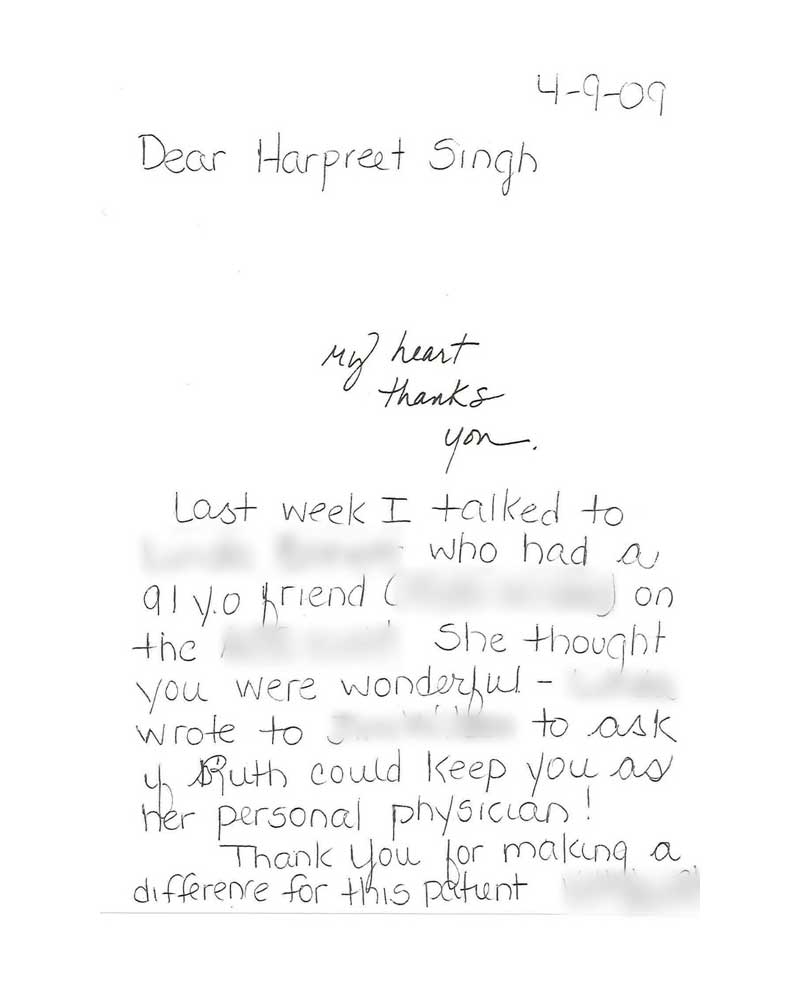 4-9-09
Dear Harpreet Singh
My heart
thanks
you.
Last week I talked to
who had a
91 y.o friend ( ) on
the She thought
you were wonderful -
wrote to to ask
if Ruth could keep you as
her personal physician!
Thank You for making a
difference for this patient